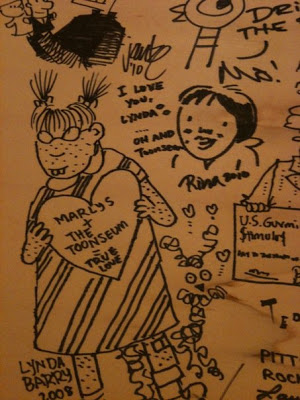 DRI
THE
Mo!
'10
I LOVE
YOU,
LYNDA
....
OH AND
TOONSEUM
Rina 2010
MARLYS
+
THE
TOONSEUM
TRUE
LOVE
U.S. Guvmi
$timulus
LYNDA
BARRY
2008
PITT
ROCK